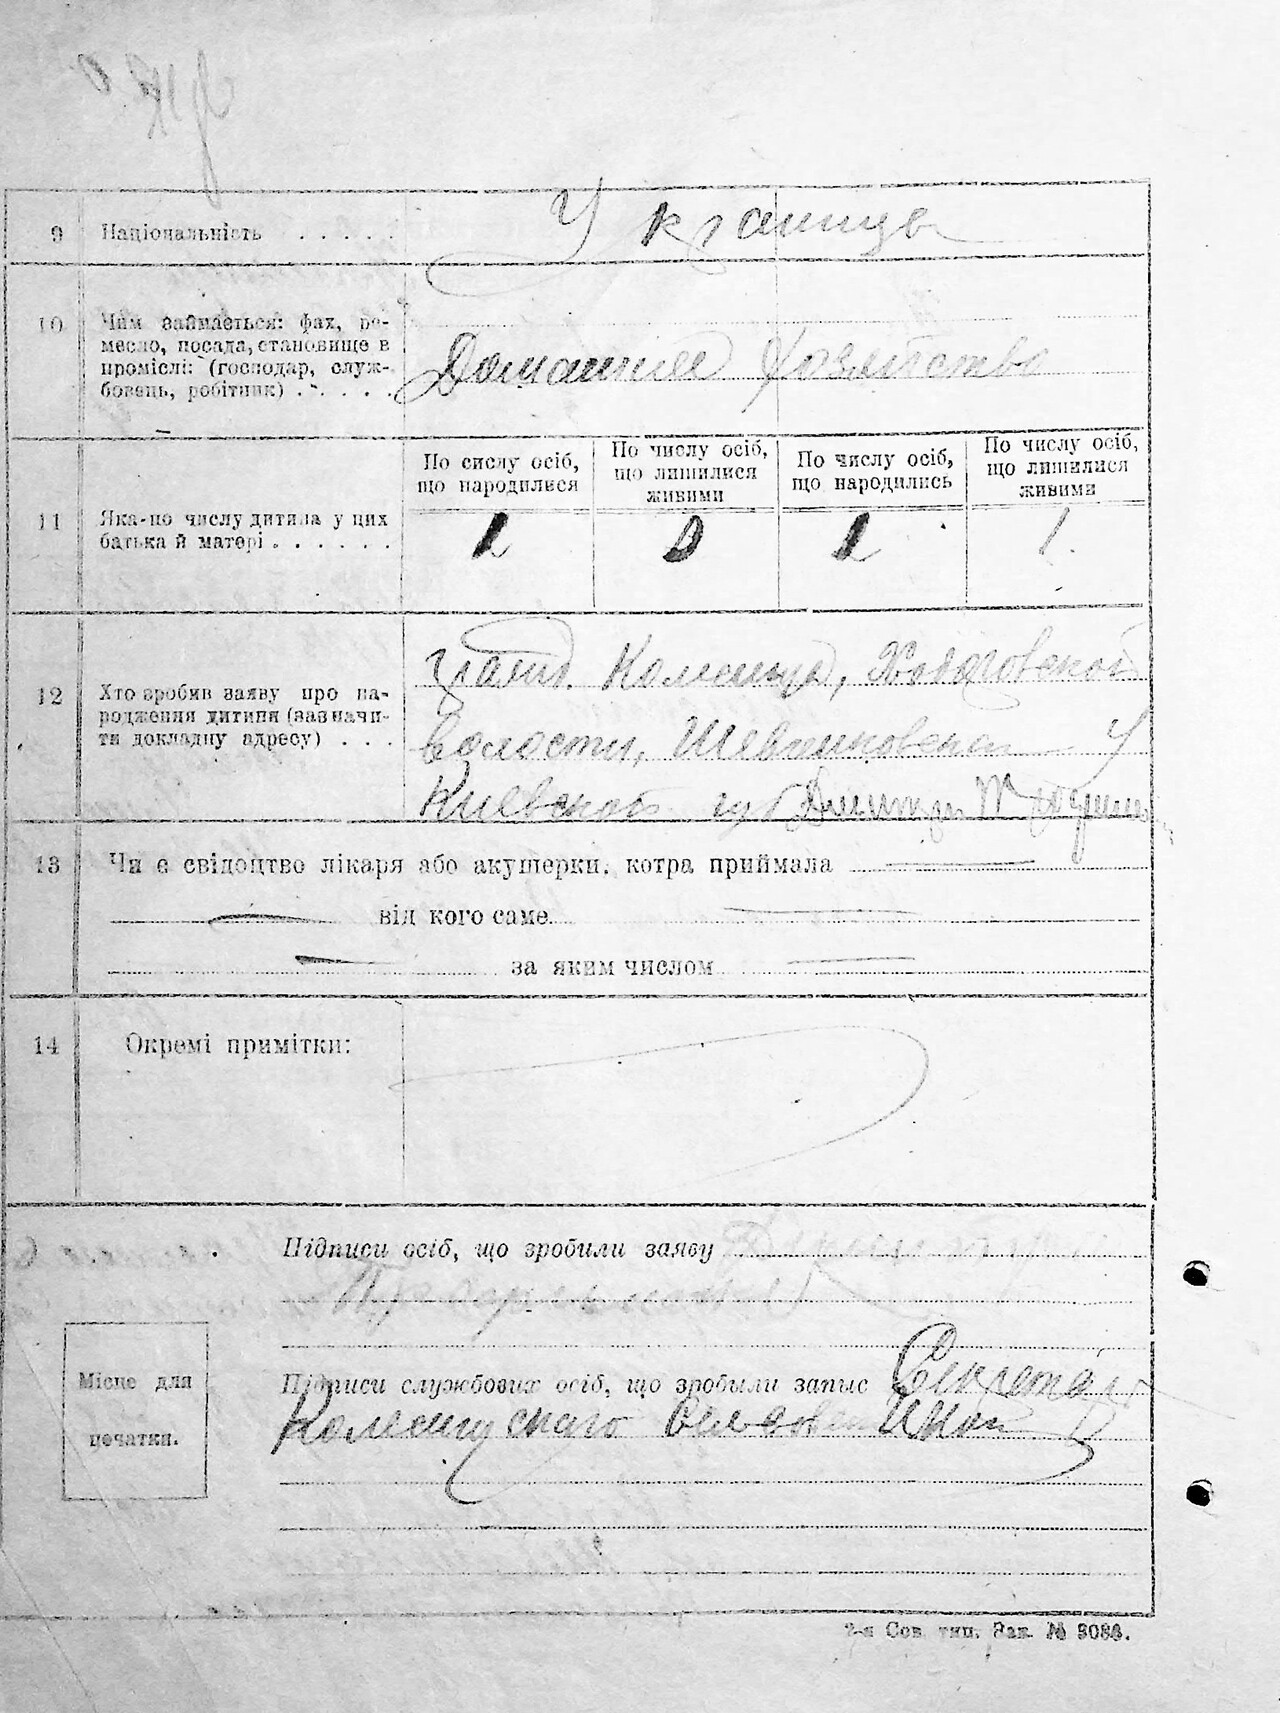 9 Національність . . . . . Украинцы
10 Чим займається: фах, ре-
месло, посада, становище в
проміслі: (господар, служ-
бовець, робітник) . . . . .
Домашнее хозяйство
По сислу осіб,
що народилися
По числу осіб,
що лишилися
живими
По числу осіб,
що народились
По числу осіб,
що лишилися
живими
11 Яка-по числу дитина у цих
батька й матері . . . . . .
1 1 1 1.
12 Хто зробив заяву про на-
родження дитини (зазначи-
ти докладну адресу) . . .
гражд.
волости, Шевченковск У
Киевской губ
13 Чи є свідоцтво лікаря або акушерки, котра приймала
від кого саме
за яким числом
14 Окремі примітки:
Підписи осіб, що зробили заяву
Місце для
печатки.
Підписи службових осіб, що зробыли запыс Секретарь
2-я Сов. тип. Зак. № 3086.